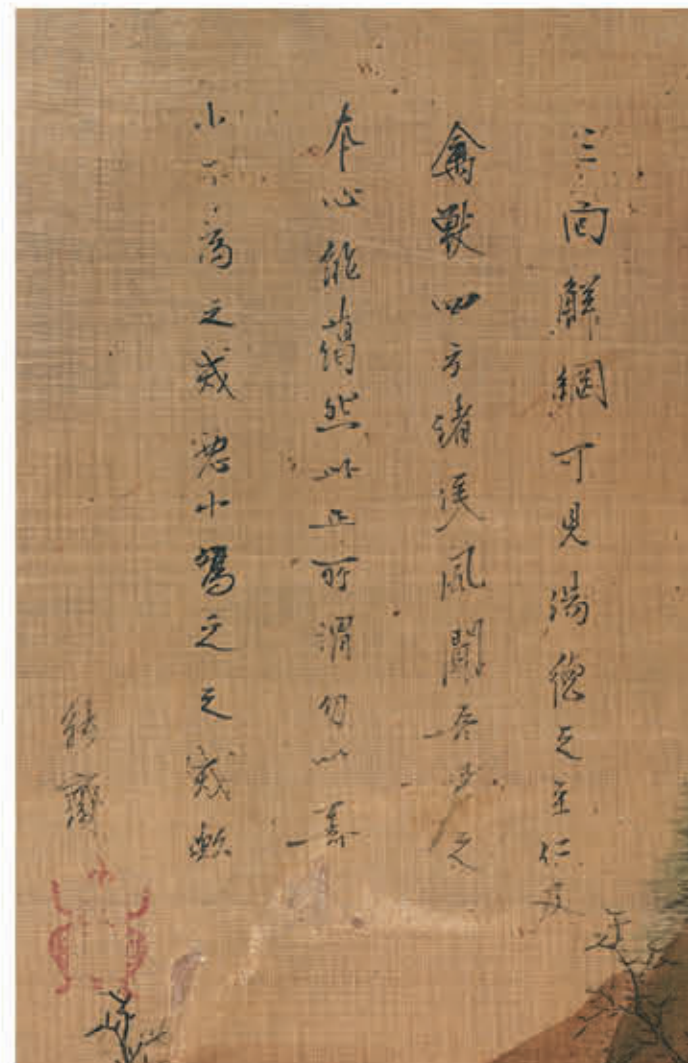 三面解網可見湯德之至仁及
禽獸四方諸侯風聞之
本心能藹然此正所謂勿以善
小不為之戒惡小為之之戒歟
齋